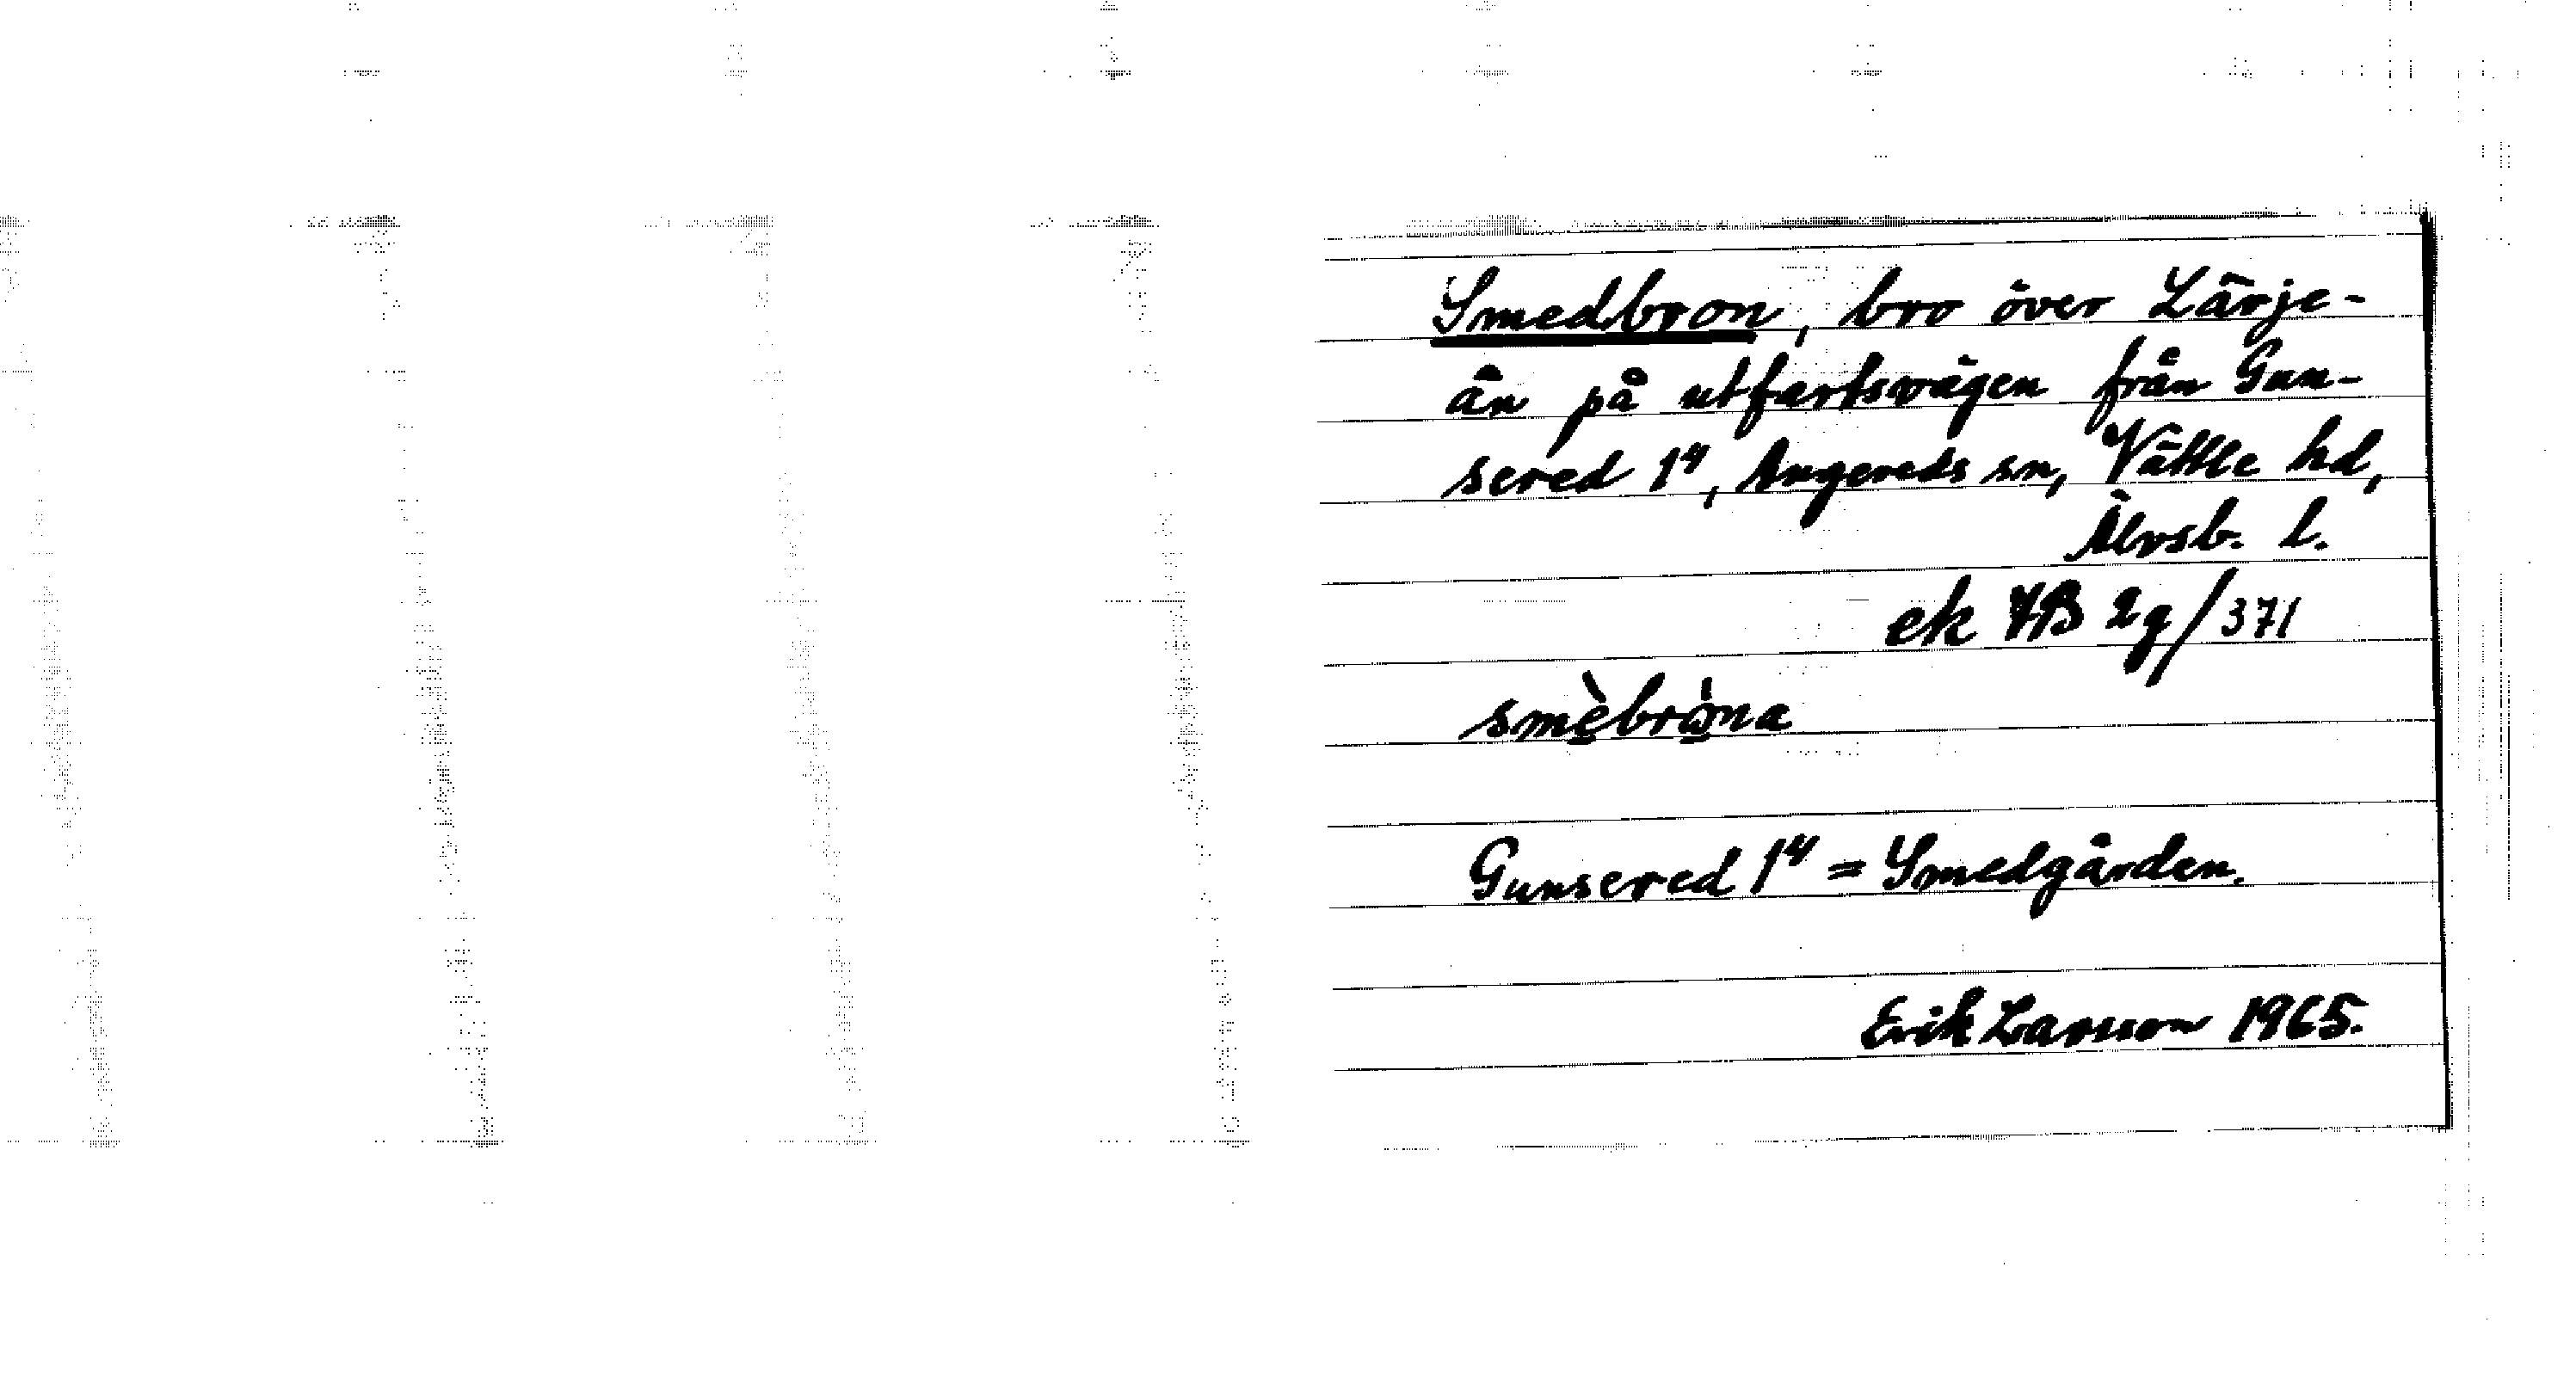 Smedbron, bro över Lärje-
ån på utfartsvägen från Gun-
sered 1⁴, Angereds sn, Vättle hd,
Älvsb. l.
ek 7B 2g/371
smèbròna
Gunsered 1⁴ = Smedgården.
Erik Larsson 1965.